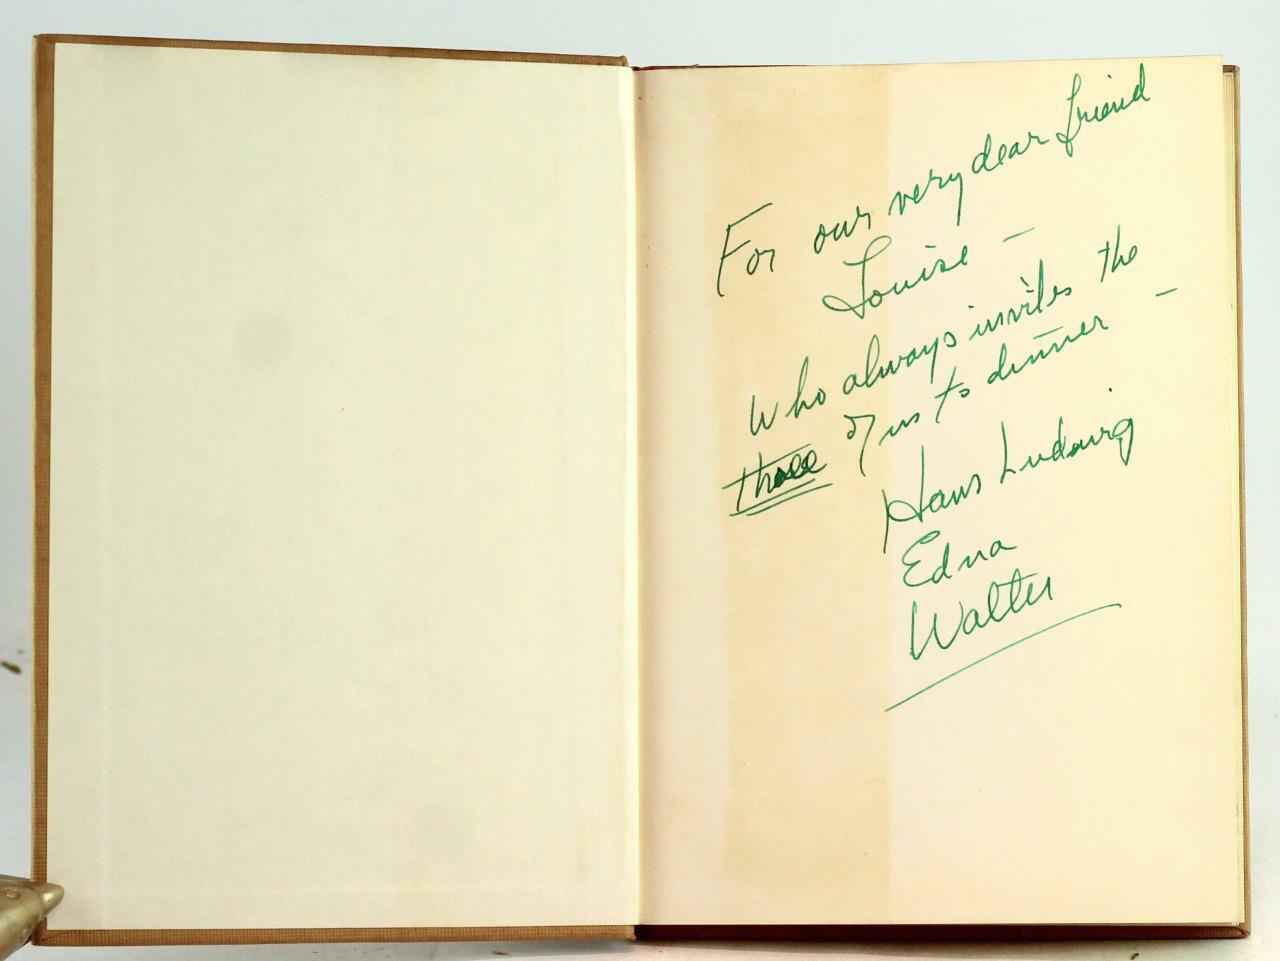 For our very dear friend
Louise —
Who always invites the
three of us to dinner —
Hans Ludwig
Edna
Walter